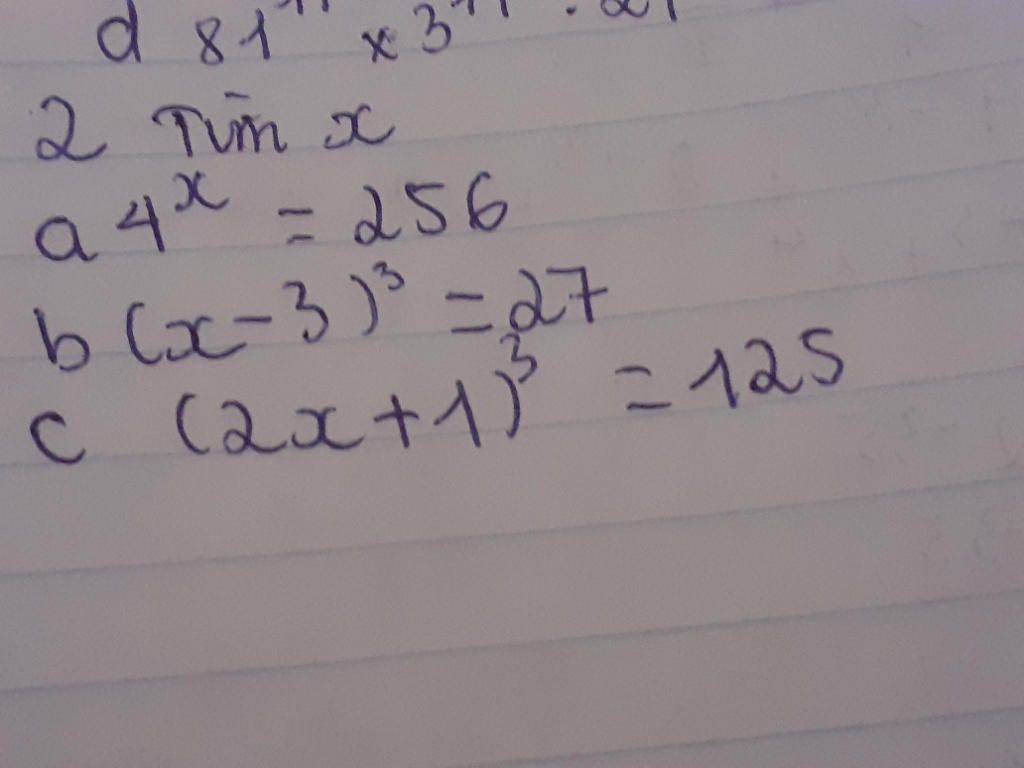 d 81 x 3
2 Tìm x
a 4ˣ = 256
b (x-3)³ = 27
c (2x+1)³ = 125